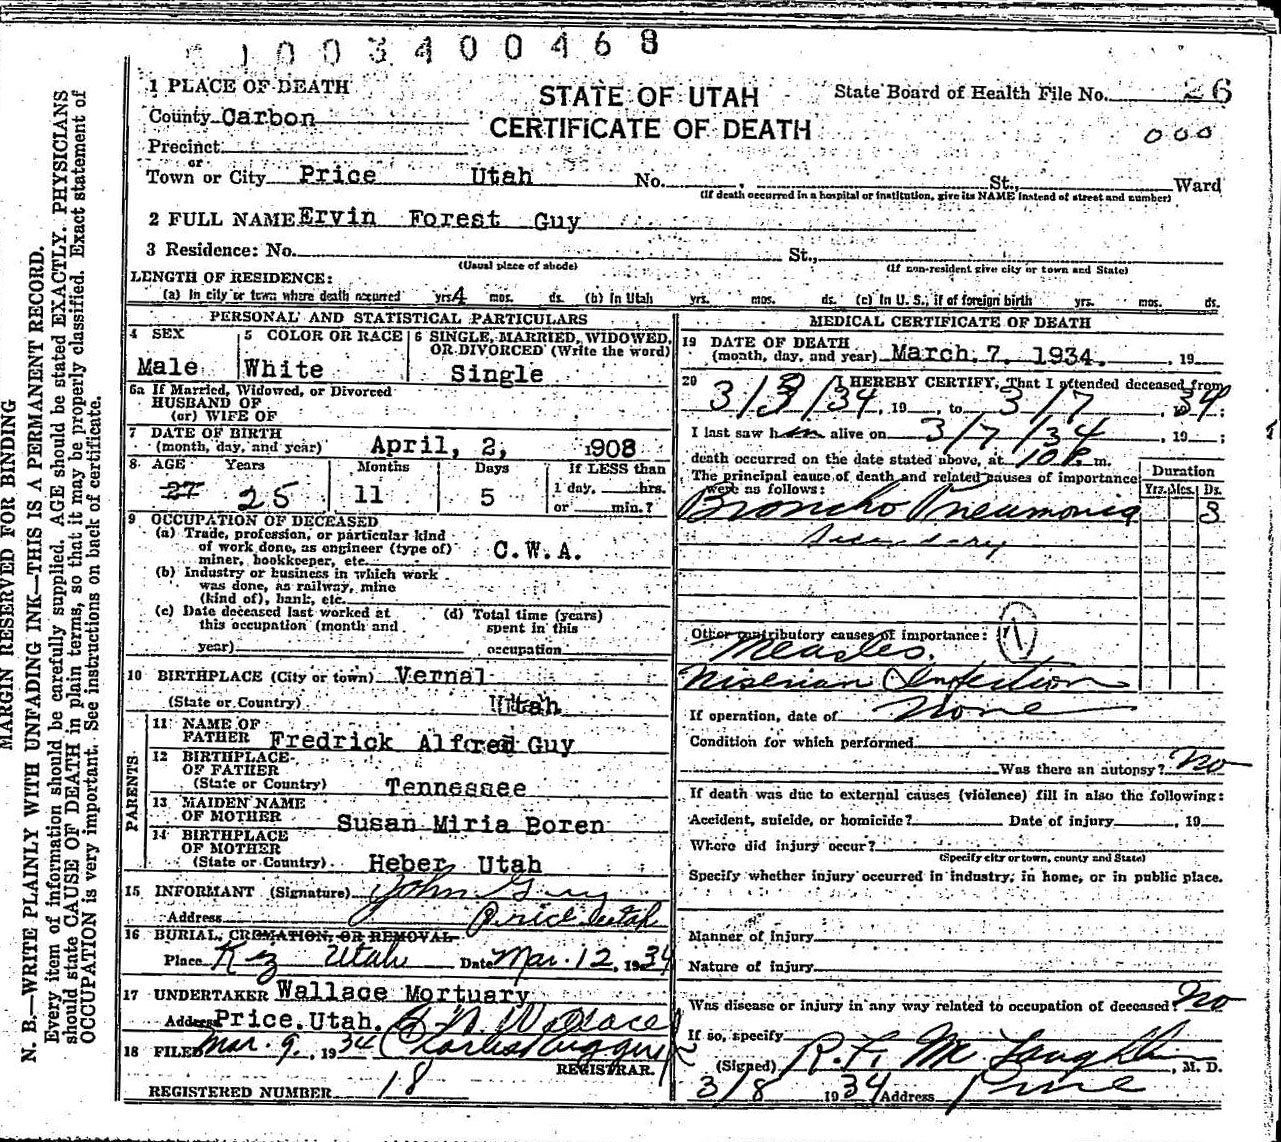 1003400468
1 PLACE OF DEATH
STATE OF UTAH
CERTIFICATE OF DEATH
State Board of Health File No. 26
000
County Carbon
Precinct
or
Town or City Price Utah No. , St., Ward
(If death occurred in a hospital or institution, give its NAME instead of street and number)
2 FULL NAME Ervin Forest Guy
3 Residence: No. St.,
(Usual place of abode) (If non-resident give city or town and State)
LENGTH OF RESIDENCE:
(a) In city or town where death occurred yrs 4 mos. ds. (b) In Utah yrs. mos. ds. (c) In U. S., if of foreign birth yrs. mos. ds.
PERSONAL AND STATISTICAL PARTICULARS
4 SEX
Male
5 COLOR OR RACE
White
6 SINGLE, MARRIED, WIDOWED,
OR DIVORCED (Write the word)
Single
6a If Married, Widowed, or Divorced
HUSBAND OF
(or) WIFE OF
7 DATE OF BIRTH
(month, day, and year) April, 2, 1908
8 AGE Years Months Days If LESS than
27 25 11 5 1 day, hrs.
or min.?
9 OCCUPATION OF DECEASED
(a) Trade, profession, or particular kind
of work done, as engineer (type of)
miner, bookkeeper, etc. C.W.A.
(b) Industry or business in which work
was done, as railway, mine
(kind of), bank, etc.
(c) Date deceased last worked at
this occupation (month and
year)
(d) Total time (years)
spent in this
occupation
10 BIRTHPLACE (City or town) Vernal
(State or Country) Utah
PARENTS
11 NAME OF
FATHER Fredrick Alfred Guy
12 BIRTHPLACE
OF FATHER
(State or Country) Tennessee
13 MAIDEN NAME
OF MOTHER Susan Miria Boren
14 BIRTHPLACE
OF MOTHER
(State or Country) Heber Utah
15 INFORMANT (Signature) John Guy
Address Price Utah
16 BURIAL, CREMATION, OR REMOVAL
Place Utah Date Mar. 12, 1934
17 UNDERTAKER Wallace Mortuary
Address Price. Utah. Wallace
18 FILED Mar. 9, 1934 Charles
REGISTRAR.
REGISTERED NUMBER 18
MEDICAL CERTIFICATE OF DEATH
19 DATE OF DEATH
(month, day, and year) March, 7. 1934. , 19
20 I HEREBY CERTIFY, That I attended deceased from
3/3/34, 19 to 3/7, 1934;
I last saw him alive on 3/7/34, 19 ;
death occurred on the date stated above, at 10 P. m.
The principal cause of death and related causes of importance
were as follows:
Duration
Yrs. Mos. Ds.
Broncho Pneumonia 3
Secondary
Other contributory causes of importance: 1
Measles.
Infection
If operation, date of None
Condition for which performed
Was there an autopsy? No
If death was due to external causes (violence) fill in also the following:
Accident, suicide, or homicide? Date of injury , 19
Where did injury occur?
(Specify city or town, county and State)
Specify whether injury occurred in industry, in home, or in public place.
Manner of injury
Nature of injury
Was disease or injury in any way related to occupation of deceased? No
If so, specify
(Signed) R. F. McLaughlin, M. D.
3/8 1934 Address Price
MARGIN RESERVED FOR BINDING
N. B.—WRITE PLAINLY WITH UNFADING INK—THIS IS A PERMANENT RECORD.
Every item of information should be carefully supplied. AGE should be stated EXACTLY. PHYSICIANS
should state CAUSE OF DEATH in plain terms, so that it may be properly classified. Exact statement of
OCCUPATION is very important. See instructions on back of certificate.